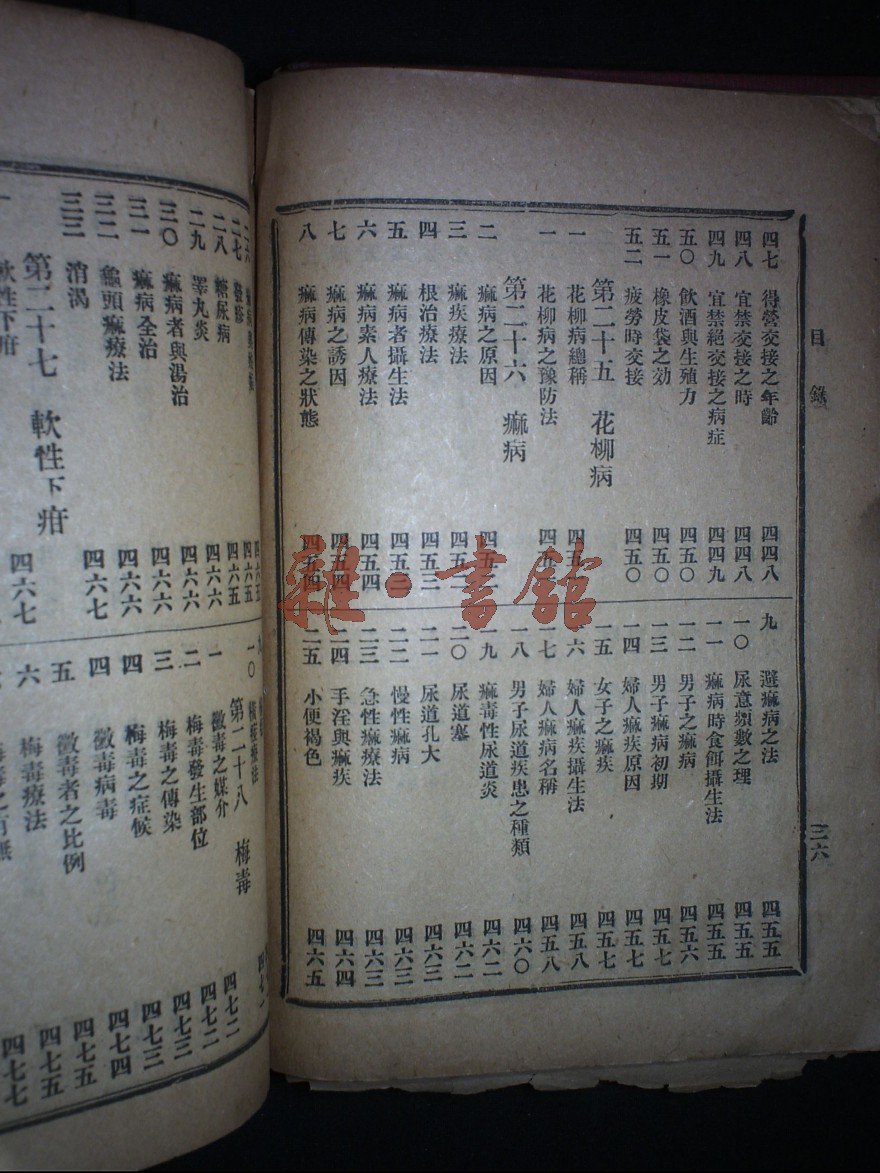 目錄
三六
四七 得營交接之年齡 四四八
四八 宜禁交接之時 四四八
四九 宜禁絕交接之病症 四四九
五〇 飲酒與生殖力 四五〇
五一 橡皮袋之効 四五〇
五二 疲勞時交接 四五〇
第二十五 花柳病
一 花柳病總稱
一 花柳病之豫防法
第二十六 痲病
二 痲病之原因
三 痲疾療法
四 根治療法 四五三
五 痲病者攝生法
六 痲病素人療法 四五四
七 痲病之誘因 四五四
八 痲病傳染之狀態 四五四
九 避痲病之法 四五五
一〇 尿意頻數之理 四五五
一一 痲病時食餌攝生法 四五五
一二 男子之痲病 四五六
一三 男子痲病初期 四五七
一四 婦人痲疾原因 四五七
一五 女子之痲疾 四五七
一六 婦人痲疾攝生法 四五八
一七 婦人痲病名稱 四五八
一八 男子尿道疾患之種類 四六〇
一九 痲毒性尿道炎 四六二
二〇 尿道塞 四六二
二一 尿道孔大 四六三
二二 慢性痲病 四六三
二三 急性痲療法 四六三
二四 手淫與痲疾 四六四
二五 小便褐色 四六五
二六
二七 發疹 四六五
二八 糖尿病 四六六
二九 睪丸炎 四六六
三〇 痲病者與湯治 四六六
三一 痲病全治 四六六
三二 龜頭痲療法 四六七
三三 消渴
第二十七 軟性下疳
一 軟性下疳
一〇
第二十八 梅毒
一 黴毒之媒介 四七二
二 梅毒發生部位 四七二
三 梅毒之傳染 四七三
四 梅毒之症候 四七三
四 黴毒病毒 四七四
五 黴毒者之比例 四七五
六 梅毒療法 四七五
四七七
雜·書館